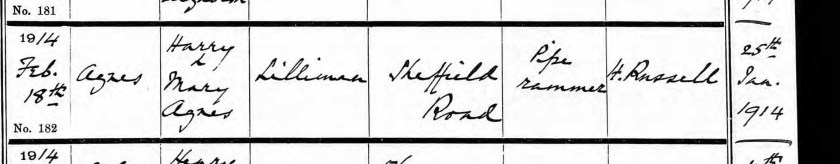 No. 181
1914
Feb.
18th
Agnes
Harry
&
Mary
Agnes
Lilliman
Sheffield
Road
Pipe
rammer
H. Russell
25th
Jan.
1914
No. 182
1914